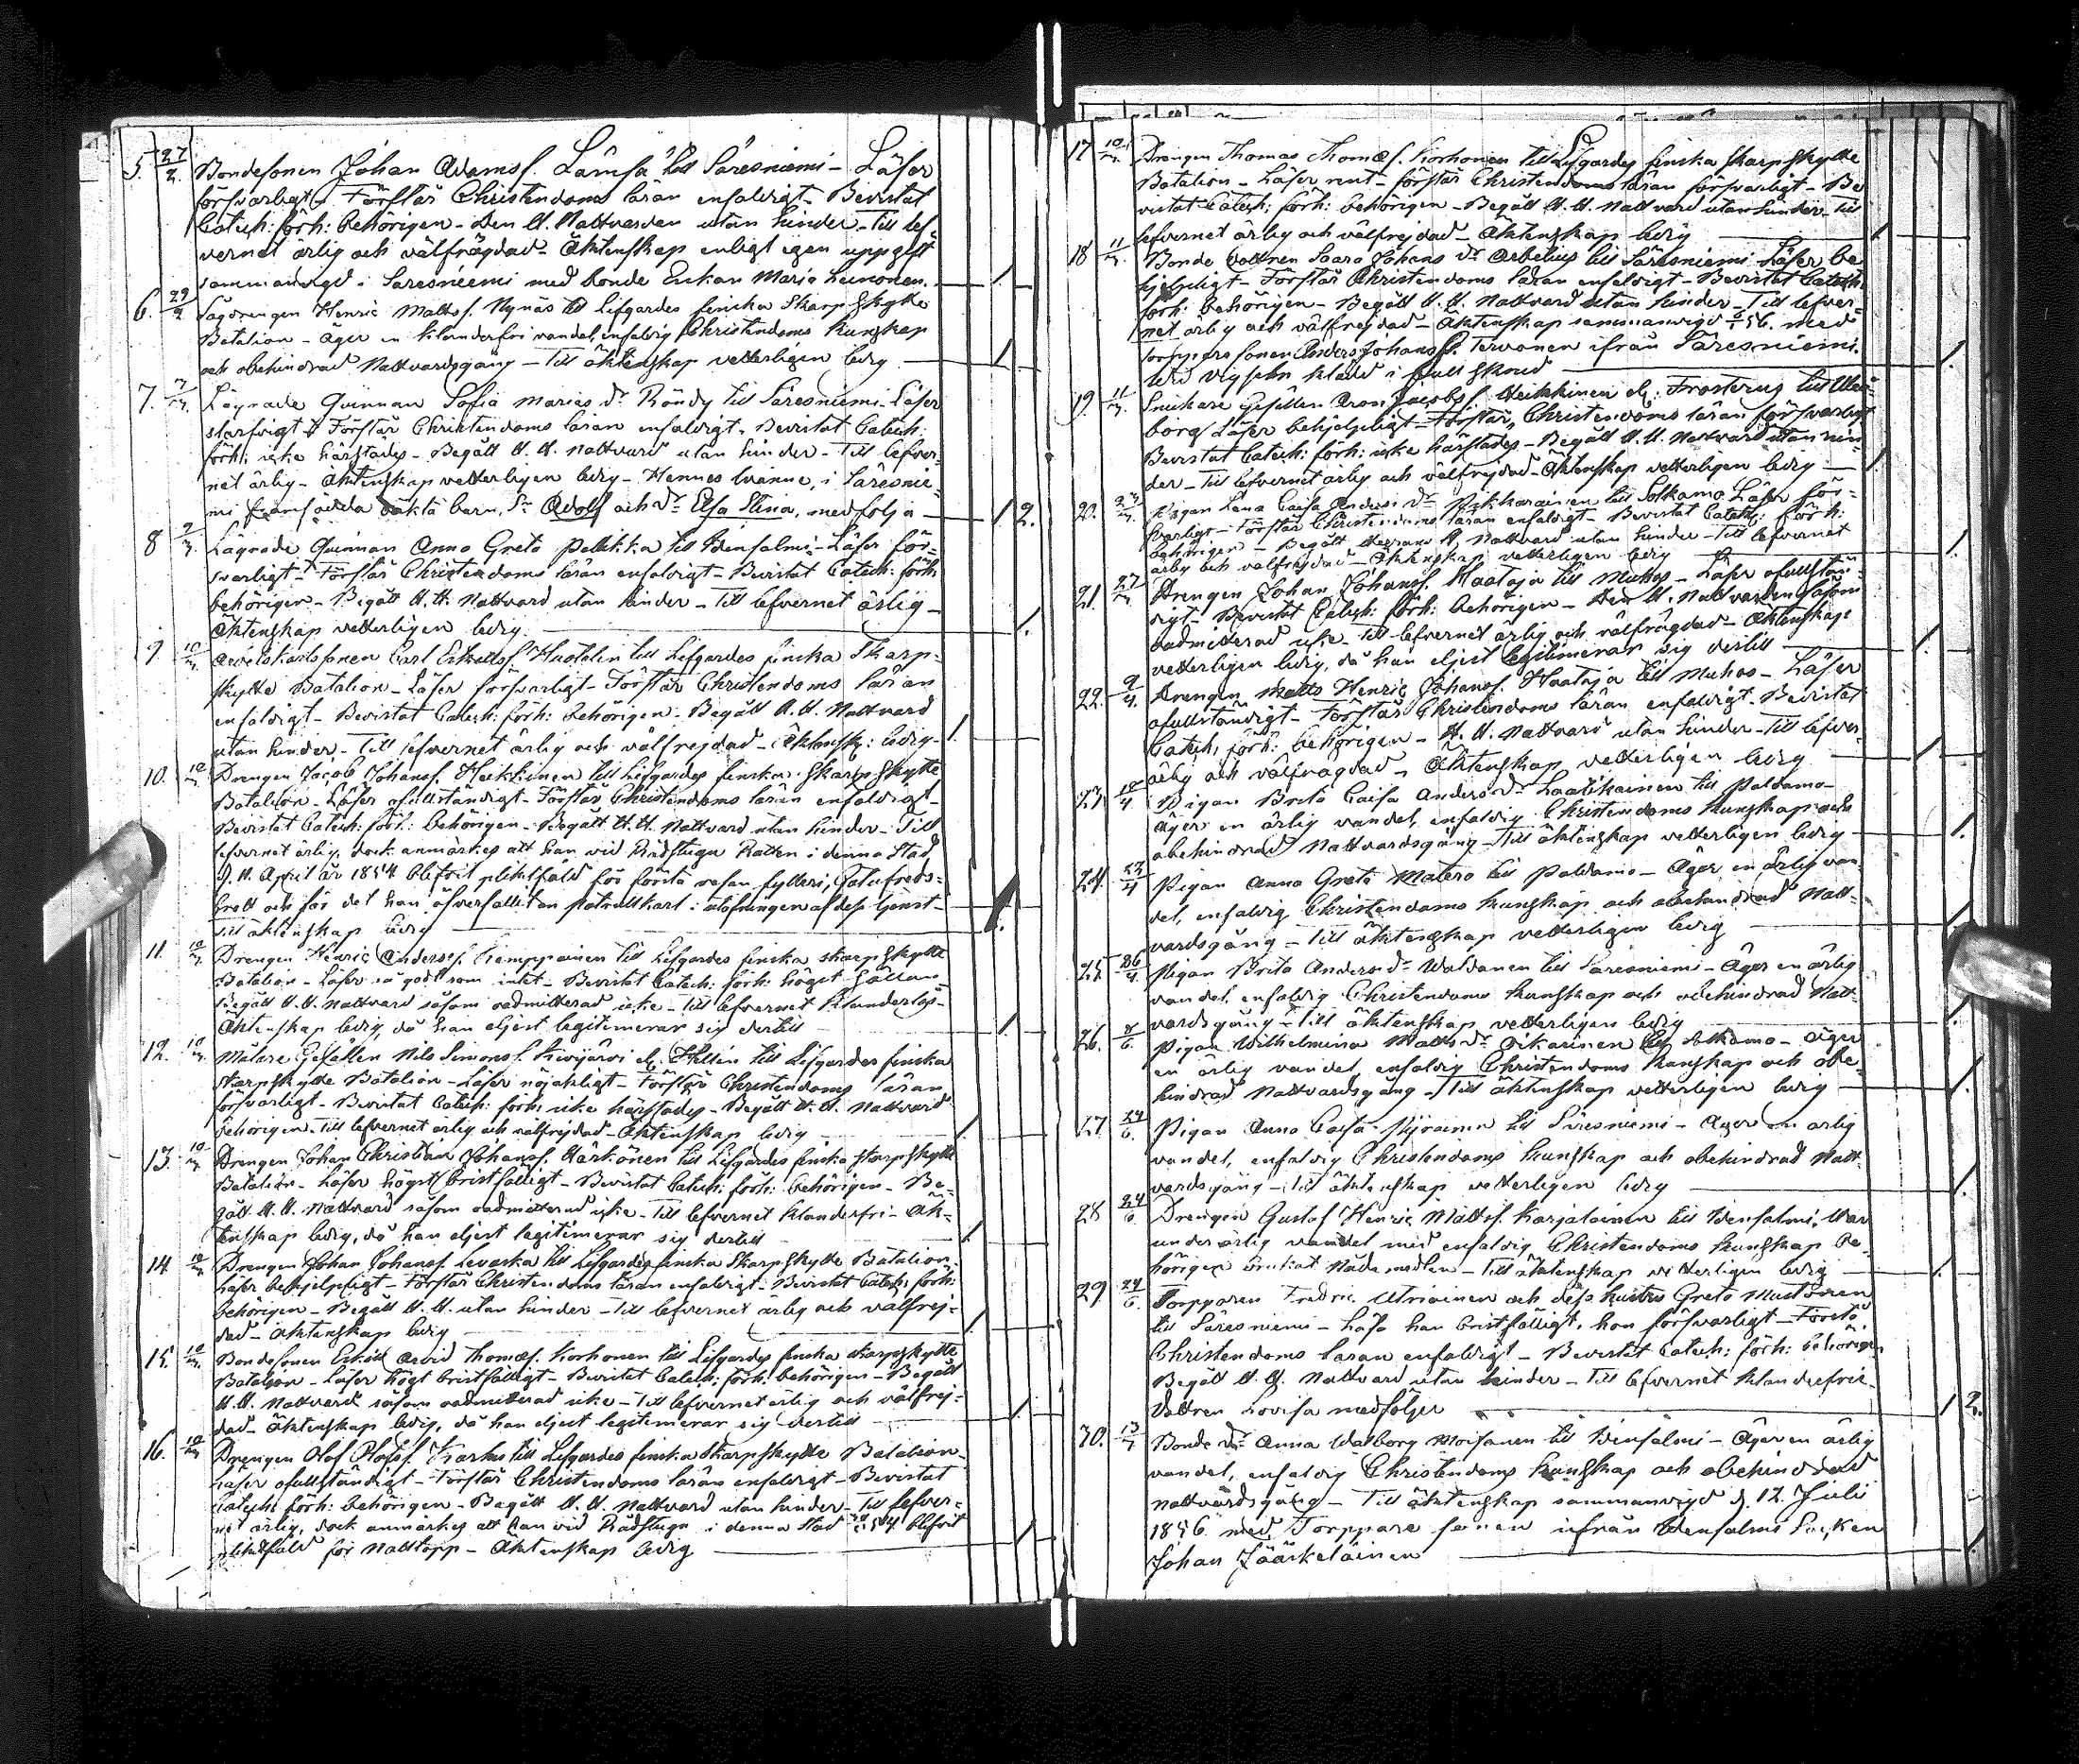 5. 27/2. Bondesonen Johan Adamss. Lämsä till Säresniemi – Läser
försvarligt – Förstår Christendoms läran enfaldigt – Bevistat
Catech: förh: behörigen – Den H. Nattvarden utan hinder – Till lef-
vernet ärlig och välfrägdad – Äktenskap enligt egen uppgift
sammanvigd i Säresniemi med bonde Enkan Maria Leinonen. 1
6. 29/2 Sågdrengen Henric Mattss. Nynäs till Lifgardes finska Skarpskytte
Batalion – Äger en klanderfri vandel, enfaldig Christendoms kunskap
och obehindrad Nattvardsgång – Till äktenskap vetterligen ledig 1
7. 7/3. Lägrade Quinnan Sofia Marias dr Röndy till Säresniemi – Läser
slarfvigt – Förstår Christendoms läran enfaldigt – Bevistat Catech:
förh: icke härstädes – Begått H. H. Nattvard utan hinder – Till lefver-
net ärlig – Äktenskap vetterligen ledig – Hennes barn, i Säresnie-
mi framfödda oäkta barn, Sn Adolf och dr Elsa Stina, medfölja 1 2.
8 7/3. Lägrade Quinnan Anna Greta Palikka till Idensalmi – Läser för-
svarligt – Förstår Christendoms läran enfaldigt – Bevistat Catech: förh:
behörigen – Begått H. H. Nattvard utan hinder – Till lefvernet ärlig –
Äktenskap vetterligen ledig 1.
9. 10/3. Arbetskarlssonen Carl Huotalin till Lifgardes finska Skarp-
skytte Batalion – Läser försvarligt – Förstår Christendoms läran
enfaldigt – Bevistat Catech: förh: behörigen – Begått H. H. Nattvard
utan hinder – Till lefvernet ärlig och välfrejdad – Äktensk: ledig – 1.
10. 10/3 Drengen Jacob Johanss. Heikkinen till Lifgardes finska Skarpskytte
Batalion – Läser ofullständigt – Förstår Christendoms läran enfaldigt –
Bevistat Catech: förh: behörigen – Begått H. H. Nattvard utan hinder – Till
lefvernet ärlig, dock anmärkes att han vid Rådstugu Rätten i denna Stad
d. 11. April år 1854 blifvit pliktfäld för första resan fylleri, Gatufreds-
brott och för det han öfverfallit en patrullkarl i utöfningen af dess tjenst –
Till äktenskap ledig 1.
11. 10/3 Drengen Henric Anderss. Kemppainen till Lifgardes finska skarpskytte
Batalion – Läser så godt som intet – Bevistat Catech: förh: högst sällan –
Begått H. H. Nattvard såsom oadmitterad icke – Till lefvernet klanderlös –
Äktenskap ledig, då han eljest legitimerar sig dertill 1.
12. 10/3. Målare Gesällen Nils Simonss. Kivijärvi el. Hellin till Lifgardes finska
skarpskytte Batalion – Läser nöjaktigt – Förstår Christendoms läran
försvarligt – Bevistat Catech: förh: icke härstädes – Begått H. H. Nattvard
behörigen – Till lefvernet ärlig och välfrejdad – Äktenskap ledig 1.
13. 10/3 Drengen Johan Christian Johanss. Härkönen till Lifgardes finska skarpskytte
Batalion – Läser högst bristfälligt – Bevistat Catech: förh: behörigen – Be-
gått H. H. Nattvard såsom oadmitterad icke – Till lefvernet klanderfri – Äk-
tenskap ledig, då han eljest legitimerar sig dertill 1.
14. 10/3 Drengen Johan Johanss. Levaska till Lifgardes finska Skarpskytte Batalion –
Läser behjelpligt – Förstår Christendoms läran enfaldigt – Bevistat Catech: förh:
behörigen – Begått H. H. utan hinder – Till lefvernet ärlig och välfrej-
dad – Äktenskap ledig 1.
15. 10/3. Bondesonen Erkill Arvid Thomæs. Korhonen till Lifgardes finska skarpskytte
Batalion – Läser högst bristfälligt – Bevistat Catech: förh: behörigen – Begått
H. H. Nattvard såsom oadmitterad icke – Till lefvernet ärlig och välfrej-
dad – Äktenskap ledig, då han eljest legitimerar sig dertill 1.
16. 10/3 Drengen Olof Olofss. Karhu till Lifgardes finska Skarpskytte Batalion –
Läser ofullständigt – Förstår Christendoms läran enfaldigt – Bevistat
Catech: förh: behörigen – Begått H. H. Nattvard utan hinder – Till lefver-
net ärlig, dock anmärkes att han vid Rådstugu i denna Stad 54. blifvit
pliktfäld för Nattlopp – Äktenskap ledig 1.
17 10/3. Drengen Thomas Thomæs. Korhonen till Lifgardes finska skarpskytte
Batalion – Läser rent – förstår Christendoms läran försvarligt – Be-
vistat Catech: förh: behörigen – Begått H. H. Nattvard utan hinder – Till
lefvernet ärlig och välfrejdad – Äktenskap ledig 1.
18 11/3. Bonde Dottren Saara Johans dr Arbelius till Säresniemi – Läser be-
hjelpligt – Förstår Christendoms läran enfaldigt – Bevistat Catech:
förh: behörigen – Begått H. H. Nattvard utan hinder – Till lefver-
net ärlig och välfrejdad – Äktenskap sammanvigd 56. med
torpparesonen Anders Johanss. Tervonen ifrån Säresniemi.
Wid vigseln klädd i full skrud 1.
19. 11/3. Snickare Gesällen Aron Jacobss. Heikkinen el. Frosterus till Uleå-
borg Läser behjelpligt – Förstår Christendoms läran försvarligt
Bevistat Catech: förh: icke härstädes – Begått H. H. Nattvard utan hin-
der – Till lefvernet ärlig och välfrejdad – Äktenskap vetterligen ledig 1.
20. Pigan Lena Caisa Anders dr Pikkarainen till Sotkamo Läser för-
svarligt – Förstår Christendoms läran enfaldigt – Bevistat Catech: förh:
behörigen – Begått H. Nattvard utan hinder – Till lefvernet
ärlig och välfrejdad – Äktenskap vetterligen ledig 1.
21. 27/3 Drengen Johan Johanss. Haataja till Muhos – Läser ofullstän-
digt – Bevistat Catech: förh: behörigen – Den H. Nattvarden såsom
oadmitterad icke – Till lefvernet ärlig och välfrägdad – Äktenskap
vetterligen ledig, då han eljest legitimerar sig dertill 1.
22. 9/4. Drengen Matts Henric Johanss. Haataja till Muhos – Läser
ofullständigt – Förstår Christendoms läran enfaldigt – Bevistat
Catech: förh: behörigen – H. H. Nattvard utan hinder – Till lefver-
ärlig och välfrägdad – Äktenskap vetterligen ledig 1.
23. 10/4 Pigan Breta Caisa Anders dr Laatikainen till Paldamo –
Äger en ärlig vandel, enfaldig Christendoms kunskap och
obehindrad Nattvardsgång – Till äktenskap vetterligen ledig 1.
24. 23/4 Pigan Anna Greta Matero till Paldamo – Äger en ärlig van-
del, enfaldig Christendoms kunskap och obehindrad Natt-
vardsgång – Till äktenskap vetterligen ledig 1.
25 26/4 Pigan Brita Anders dr Waldanen till Säresniemi – Äger en ärlig
vandel, enfaldig Christendoms kunskap och obehindrad Natt-
vardsgång – Till äktenskap vetterligen ledig 1.
26. Pigan Wilhelmina Matts dr Oikarinen till Sotkamo – Äger
en ärlig vandel, enfaldig Christendoms kunskap och obe-
hindrad Nattvardsgång – Till äktenskap vetterligen ledig 1.
27. 24/6. Pigan Anna Caisa till Säresniemi – Äger en ärlig
vandel, enfaldig Christendoms kunskap och obehindrad Natt-
vardsgång – Till äktenskap vetterligen ledig 1.
28 24/6. Drengen Gustaf Henric Mattss. Karjalainen till Idensalmi, Har
under ärlig vandel med enfaldig Christendoms kunskap be-
hörigen brukat Nådemedlen – Till äktenskap vetterligen ledig 1.
29. 24/6. Torpparen Fredric Utriainen och dess hustru Greta Mustonen
till Säresniemi – Läsa han bristfälligt, hon försvarligt – Förstå
Christendoms läran enfaldigt – Bevistat Catech: förh: behörigen
Begått H. H. Nattvard utan hinder – Till lefvernet klanderfrie –
Dottren Lovisa medföljer 1 2.
30. 13/7 Bonde dr Anna Walborg Moisanen till Idensalmi – Äger en ärlig
vandel, enfaldig Christendoms kunskap och obehindrad
nattvardsgång – Till äktenskap sammanvigd d. 12. Juli
1856 med Torppare sonen ifrån Idensalmi Socken
Johan Jääskeläinen 1.